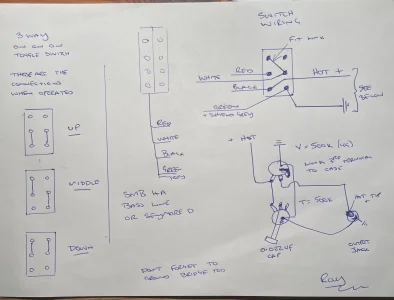 3 WAY
ON ON ON
TOGGLE SWITCH
THESE ARE THE
CONNECTIONS
WHEN OPERATED
UP
MIDDLE
DOWN
RED
WHITE
BLACK
GREY
SMB 4A
BASS LINE
OR SEYMORE D
DON'T FORGET TO
GROUND BRIDGE TOO
SWITCH
WIRING
FIT LINK
WHITE
RED
HOT +
BLACK
GREEN
+ SHIELD GREY
SEE
BELOW
+ HOT
V = 500K (LOG)
LINK 3RD TERMINAL
TO CASE
T = 500K
TIP
0.022UF
CAP
OUTPUT
JACK
Ray